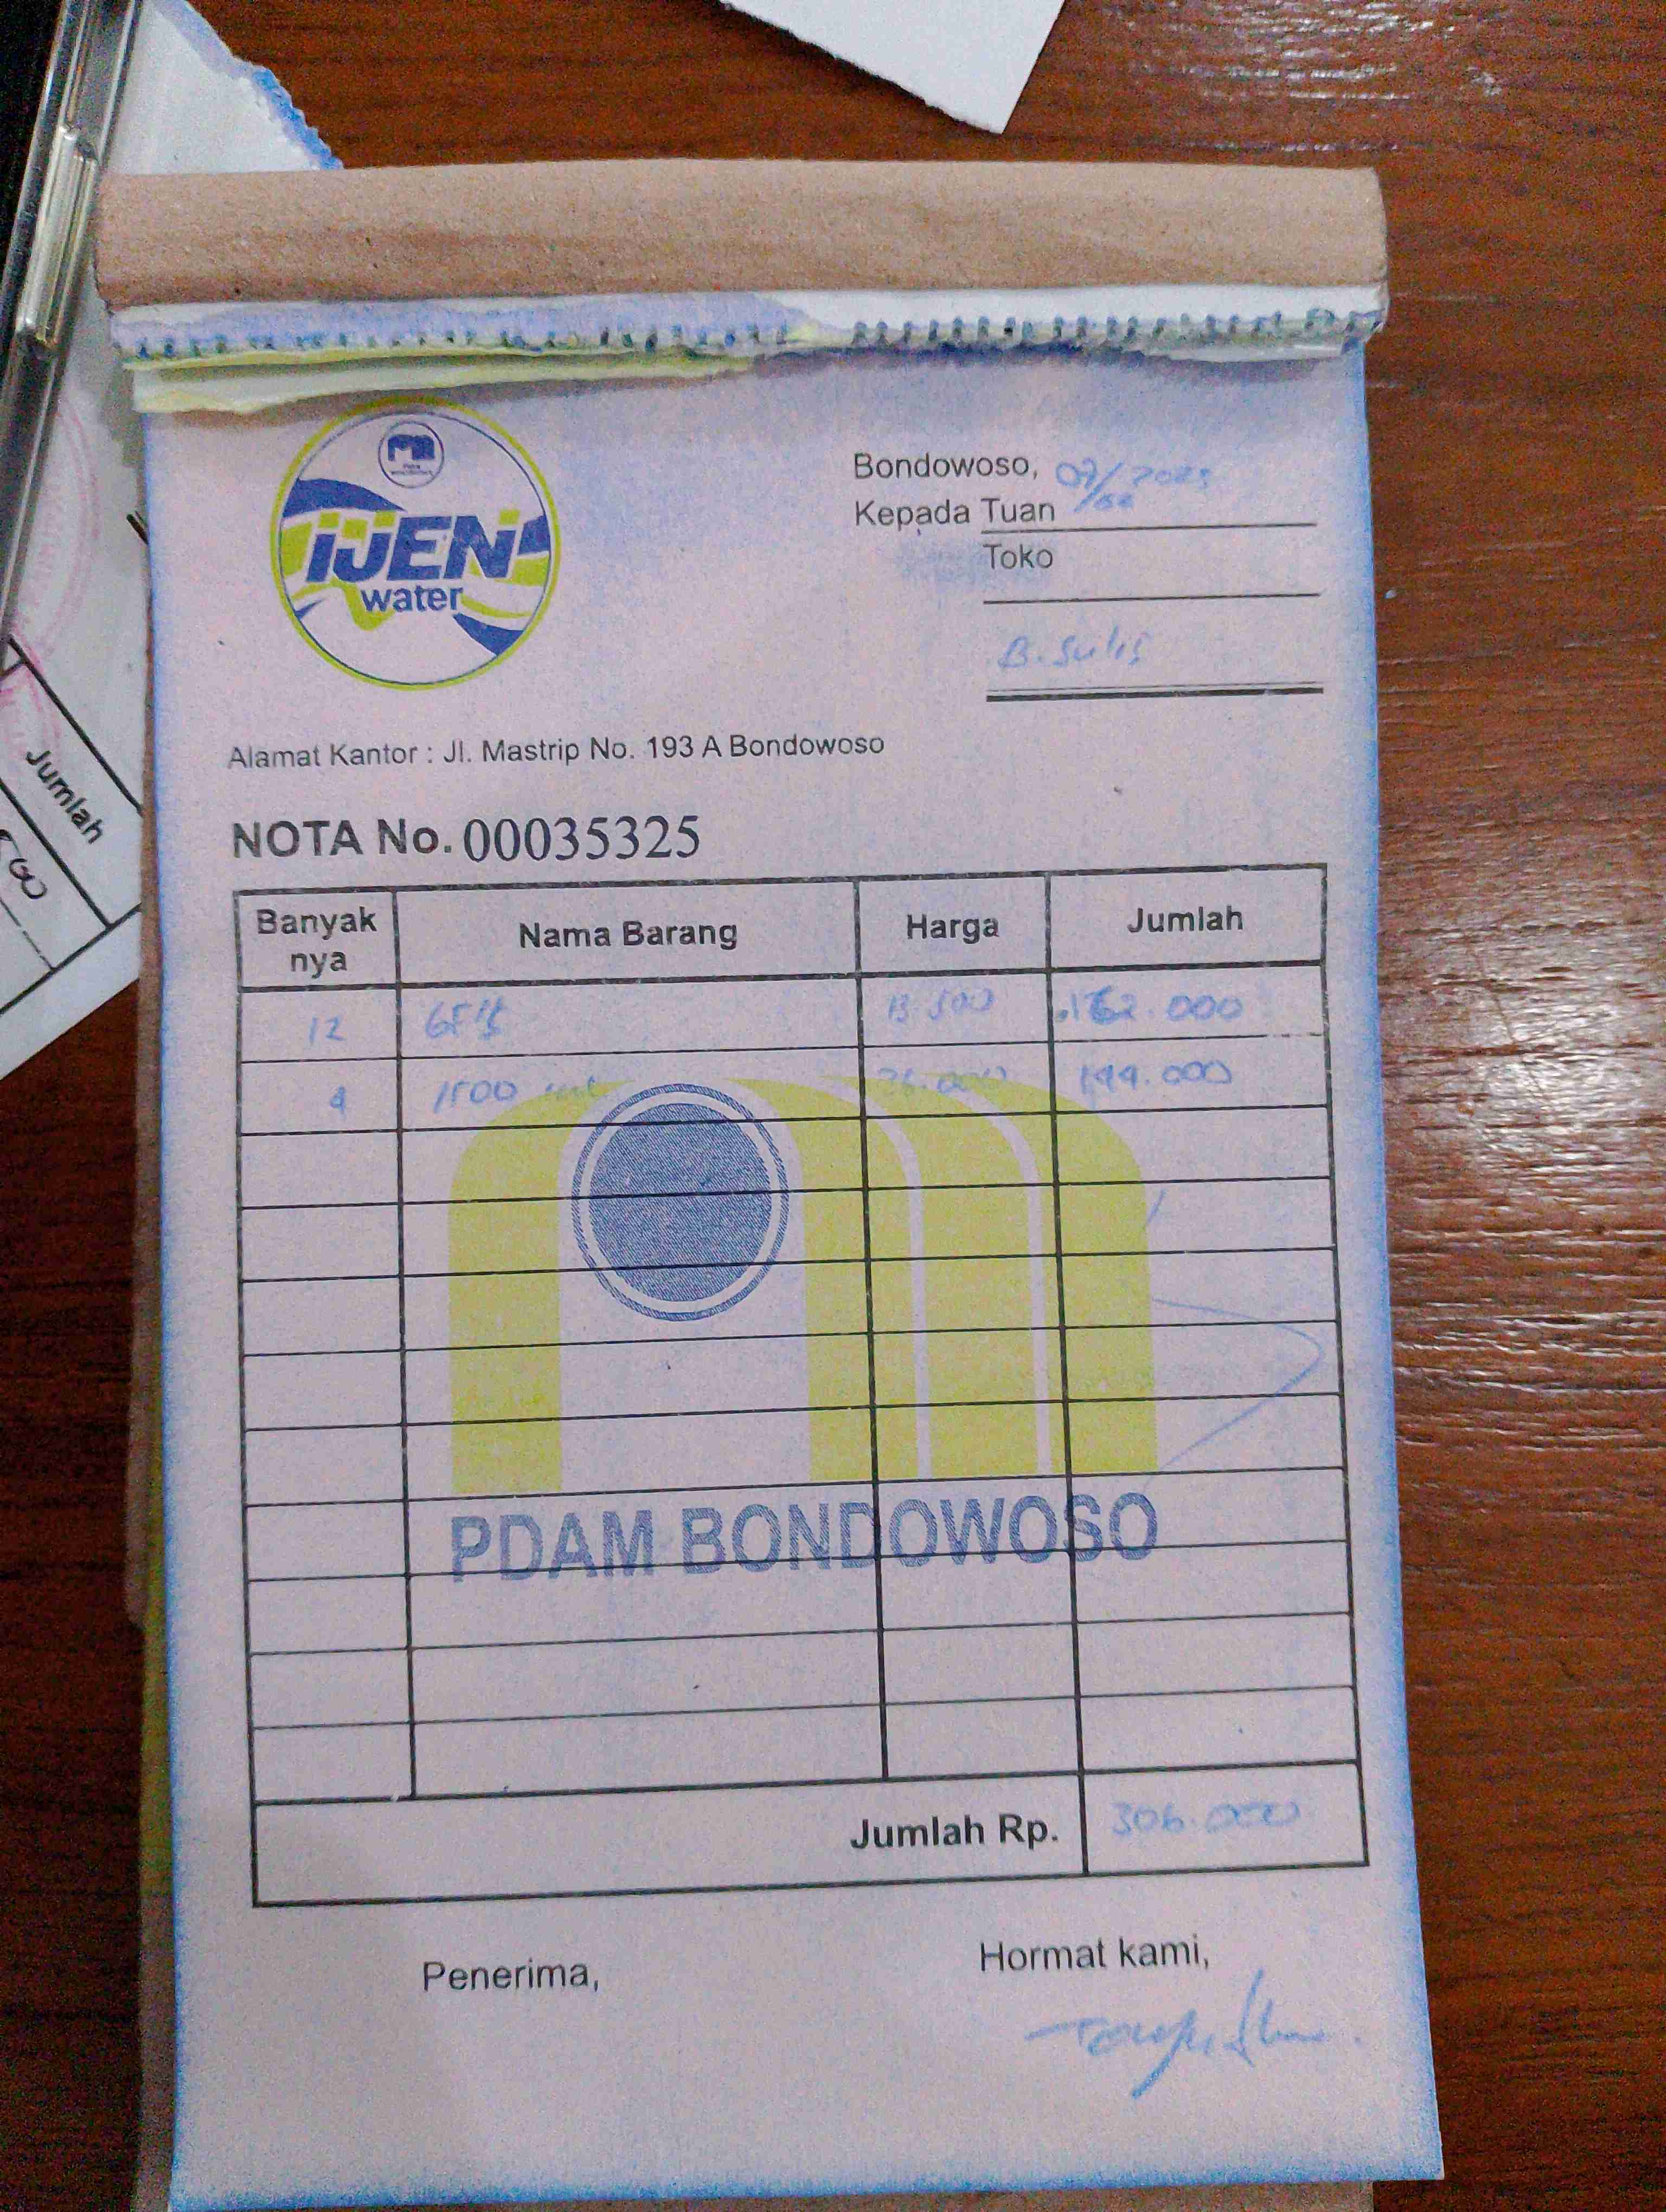 iJEN
water
Bondowoso, 07/ 2025
Kepada Tuan
Toko
B. Sulis
Alamat Kantor : Jl. Mastrip No. 193 A Bondowoso
NOTA No. 00035325
Banyak nya Nama Barang Harga Jumlah
12 13.500 162.000
4 1500 ml 36.000 144.000
PDAM BONDOWOSO
Jumlah Rp. 306.000
Penerima,
Hormat kami,
Jumlah